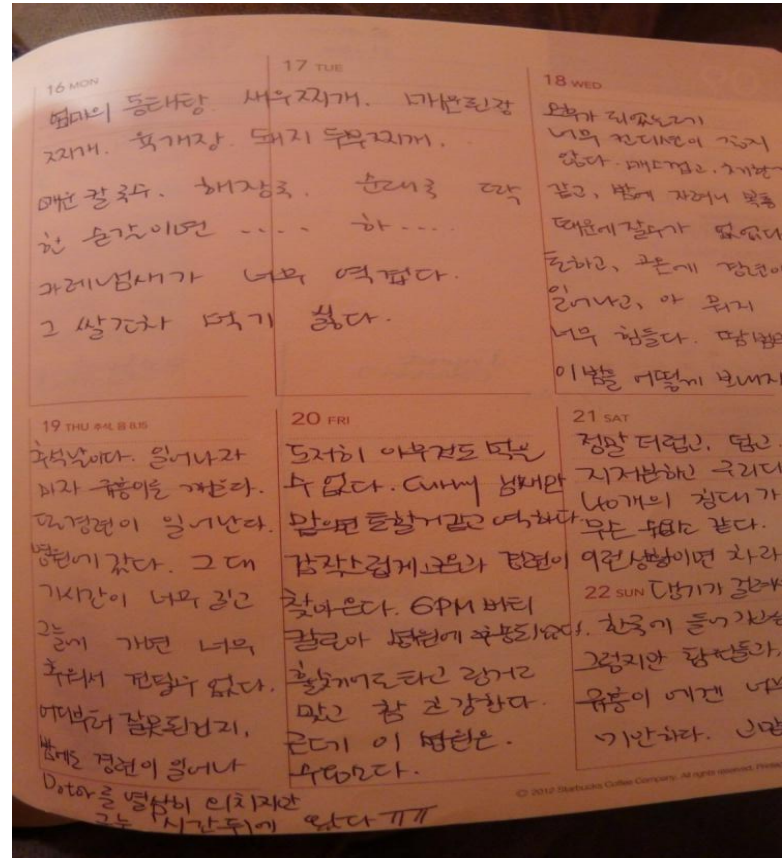 16 MON
엄마의 동태탕. 새우찌개. 매운된장
찌개. 육개장. 돼지 두부찌개.
매운 칼국수. 해장국. 순대국 딱
한 숟갈이면 ..... 하....
카레냄새가 너무 역겹다.
그 쌀조차 먹기 싫다.
17 TUE
18 WED
오후가 되었는데
너무 컨디션이 좋지
않다. 매스껍고,
같고, 밤에 자려니 복통
때문에 잘수가 없었다
토하고, 고온에 경련이
일어나고, 아 뭐지
너무 힘들다.
이 밤을 어떻게 보내지
19 THU 추석, 음 8.15
추석날이다. 일어나자
마자 유릉이를 깨운다.
또 경련이 일어난다.
병원에 갔다. 그 대
기시간이 너무 길고
그늘에 가면 너무
추워서 견딜수 없다.
어디부터 잘못된건지,
밤에도 경련이 일어나
Dotor를 열심히 외치지만
그는 시간뒤에 왔다 ㅠㅠ
20 FRI
도저히 아무것도 먹을
수 없다. Curry 냄새만
맡으면 토할거 같고 역하다.
갑작스럽게 고온과 경련이
찾아온다. 6PM 버티
칼로아 병원에 수용되었다.
휠체어도 타고 링거도
맞고 참 건강한다.
근데 이 병원은.
수용소다.
21 SAT
정말 더럽고, 덥고
지저분하고 구리다
40개의 침대가
무슨 수용소 같다.
이런 상황이면 차라
22 SUN
댕기가 걸려서
한국에 들어가는
그렇지만
유릉이에겐 너무
미안하다.
© 2012 Starbucks Coffee Company. All rights reserved.